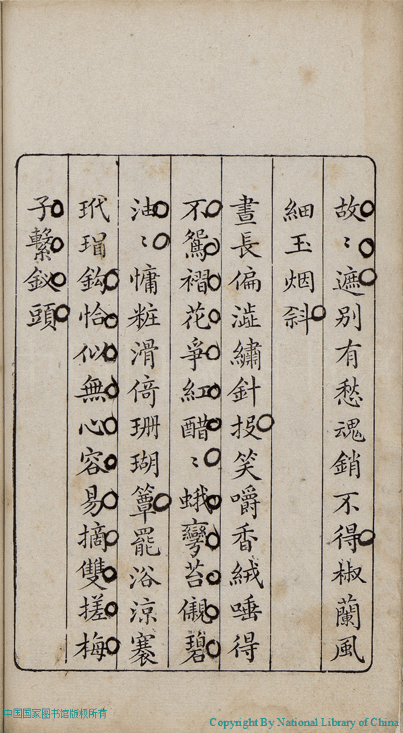 故〻遮別有愁魂銷不得椒蘭風
細玉烟斜
晝長偏澁繡針投笑嚼香絨唾得
不鴛褶花爭紅醋〻蛾彎苔儭碧
油〻慵粧滑倚珊瑚簟罷浴涼褰
玳瑁鈎恰似無心容易摘雙搓梅
子繫釵頭
中国国家图书馆版权所有
Copyright By National Library of China